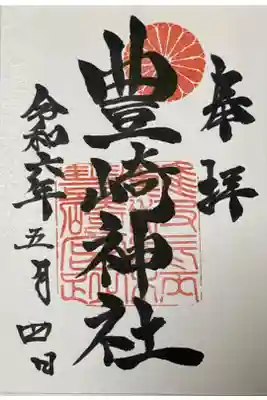 奉拝
豊崎神社
令和六年五月四日